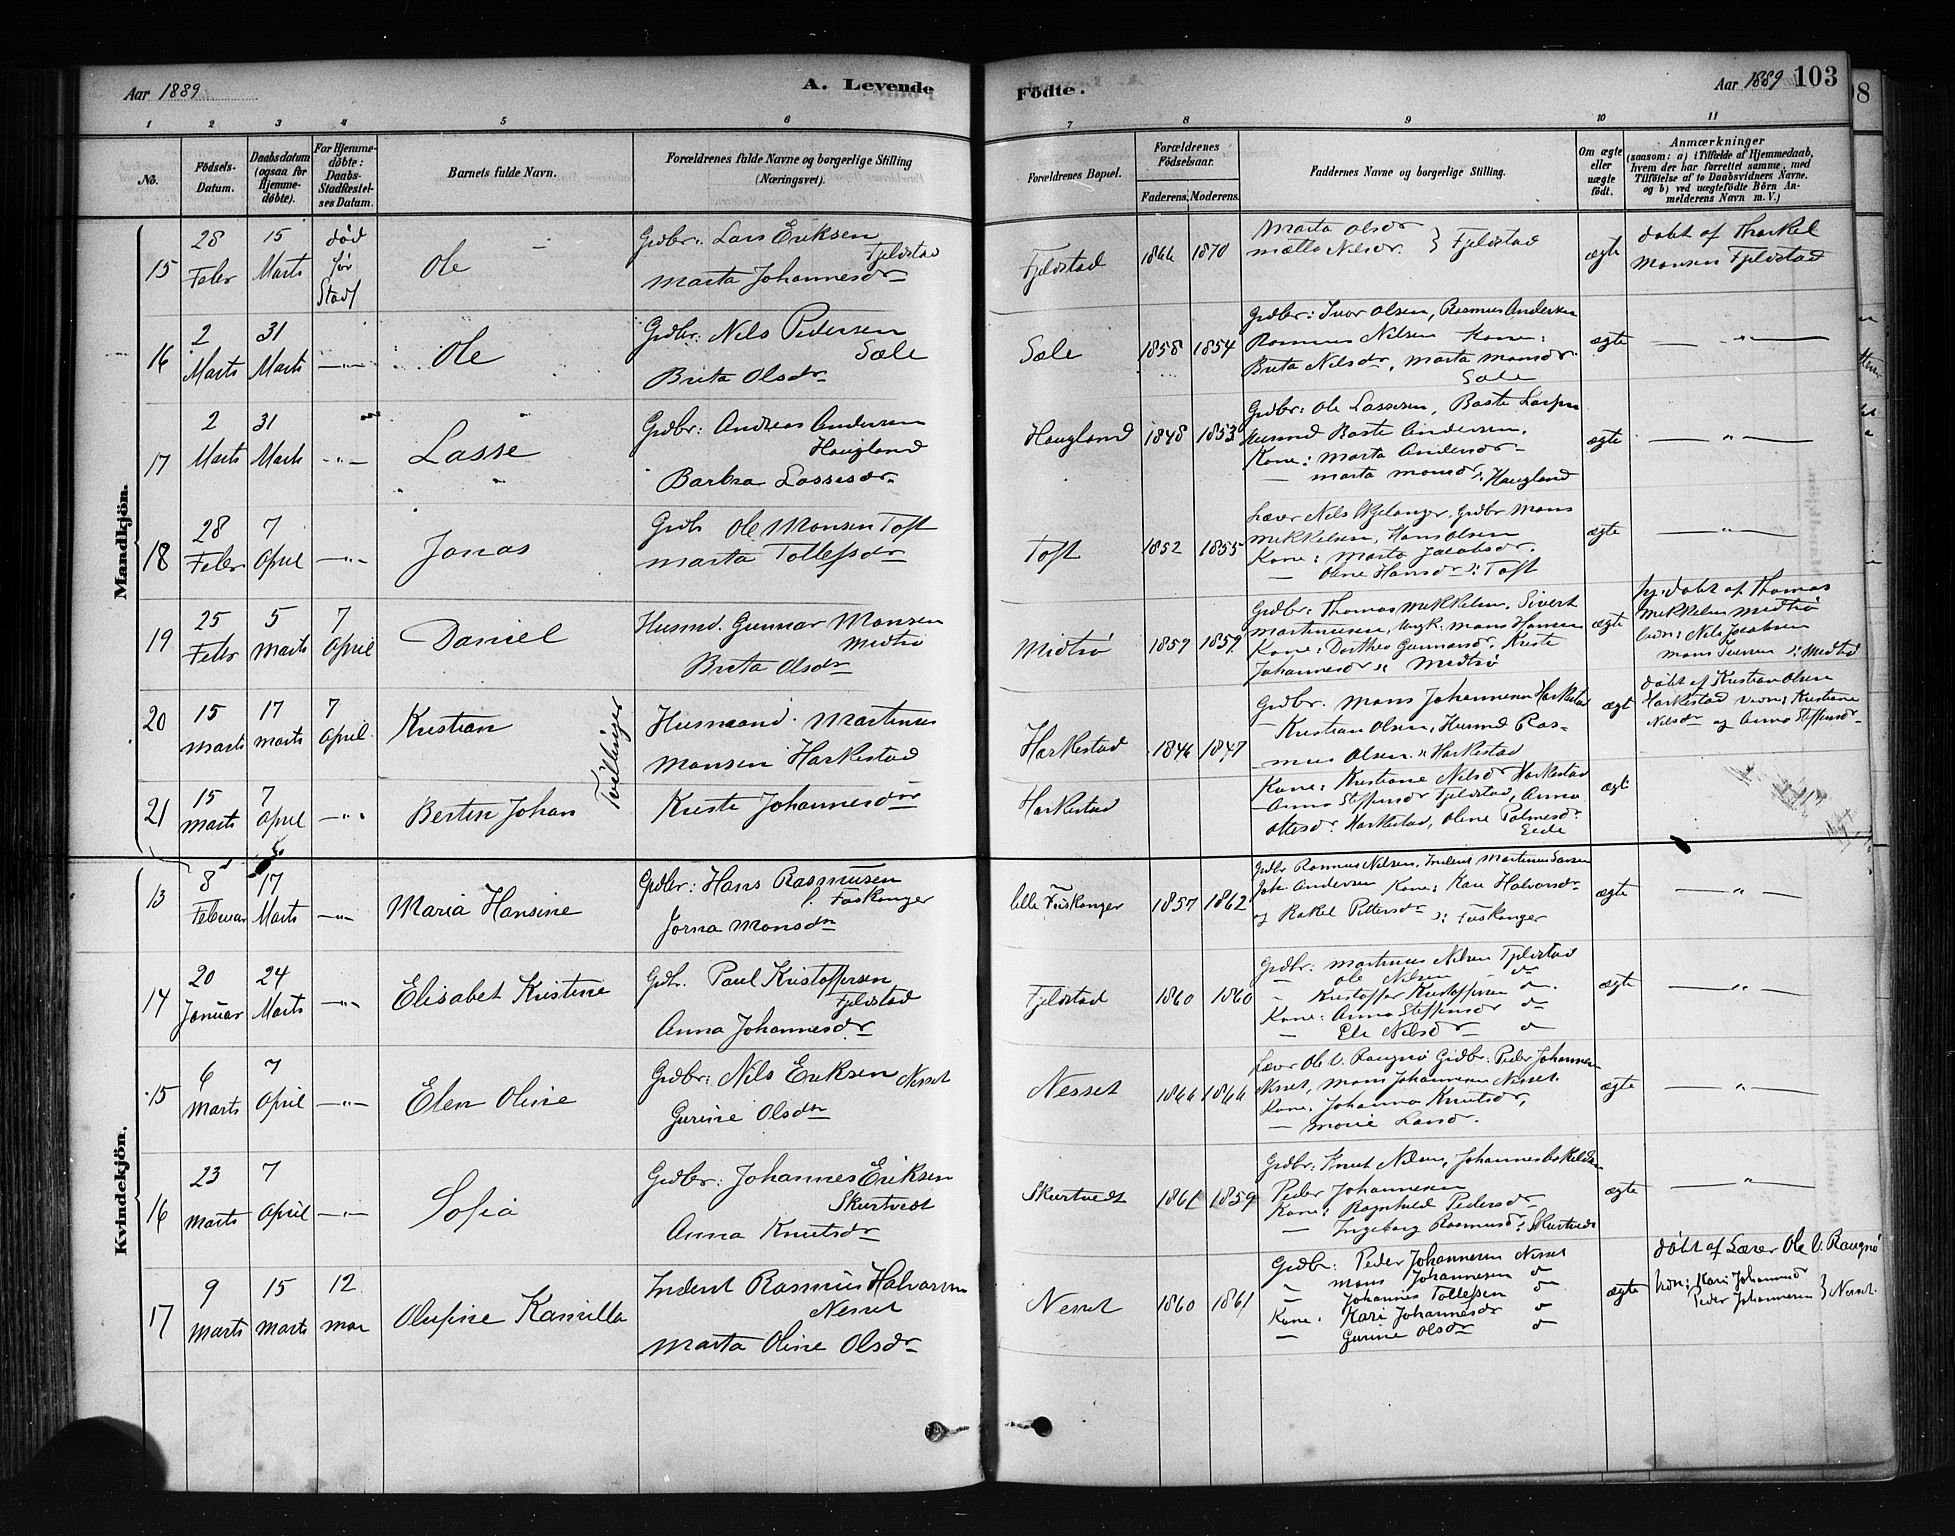 Aar 1889
A. Levende
Födte.
Aar 1889 103
1 2 3 4 5 6 7 8 9 10 11
No.
Födsels-
Datum.
Daabsdatum
(ogsaa for
Hjemme-
döbte).
For Hjemme-
döbte:
Daabs-
Stadfæstel-
ses Datum.
Barnets fulde Navn.
Forældrenes fulde Navne og borgerlige Stilling
(Næringsvei).
Forældrenes Bopæl.
Forældrenes
Födselsaar.
Faderens. Moderens.
Faddernes Navne og borgerlige Stilling.
Om ægte
eller
uægte
födt.
Anmærkninger
(saasom: a) i Tilfælde af Hjemmedaab,
hvem der har forrettet samme, med
Tilföielse af to Daabsvidners Navne.
og b) ved uægtefödte Börn An-
melderens Navn m. V.)
Mandkjön.
15
28
Febr
15
Marts
død
før
Stadf
Ole
Grdbr: Lars Eriksen
Fjeldstad
Marta Johannesdr
Fjeldstad
1866 1870
Marta Olsdr
Mætte Nilsdr } Fjeldstad
ægte
døbt af Thorkel
Monsen Fjeldstad
16
2
Marts
31
Marts
—"—
Ole
Grdbr: Nils Pedersen
Sæle
Brita Olsdr
Sæle
1858 1854
Grdbr: Ivar Olsen, Rasmus Andersen
Rasmus Nilsen Kone:
Brita Nilsdr, Marta Monsdr
Sæle
ægte
— " —
17
2
Marts
31
Marts
—"—
Lasse
Grdbr: Andreas Andersen
Haugland
Barbra Lassesdr
Haugland
1848 1853
Grdbr: Ole Lassesen, Baste Larsen
Husmd Baste Andersen,
Kone: Marta Andersdr
— Marta Monsdr: Haugland
ægte
— " —
18
28
Febr
7
April
—"—
Jonas
Grdbr Ole Monsen Toft
Marta Tollefsdr
Toft
1852 1855
Lærer Nils Kjelanger, Grdbr Mons
Mikkelsen, Hans Olsen
Kone: Marta Jacobsdr.
— Oline Hansdr: Toft
ægte
— " —
19
25
Febr
5
Marts
7
April
Daniel
Husmd. Gunnar Monsen
Midtrø
Brita Olsdr
Midtrø
1857 1859
Grdbr: Thomas Mikkelsen, Sivert
Martinusen, Ungk. Mons Hansen
Kone: Dorthea Gunnarsdr, Kriste
Johannesdr: Midtrø
ægte
hj. døbt af Thomas
Mikkelsen Midtrø
Vidn: Nils Jacobsen
Mons Iversen : Midtrø
20
15
Marts
17
Marts
7
April
Kristian
Tvillinger
Husmand. Martinus
Monsen Harkestad
Harkestad
1846 1847
Grdbr. Mons Johannesen Harkestad
— Kristian Olsen, Husmd Ras-
mus Olsen: Harkestad
ægte
døbt af Kristian Olsen
Harkestad Vidn: Kristiane
Nilsdr og Anna Steffensdr
21
15
Marts
7
April
—"—
Bertin Johan
Kriste Johannesdr
Harkestad
Kone: Kristiane Nilsdr Harkestad
Anna Steffensdr Fjeldstad, Anna
Ottesdr. Harkestad, Oline Palmesdr.
Eide
ægte
Kvindekjön.
13
8
Februar
17
Marts
—"—
Maria Hansine
Grdbr: Hans Rasmusen
l. Fuskanger
Jorna Monsdr
lille Fuskanger
1857 1862
Grdbr Rasmus Nilsen, Inderst Martinus Larsen
Joh. Andersen Kone: Kari Halvorsdr
og Rakel Pittersdr : Fuskanger
ægte
— " —
14
20
Januar
24
Marts
—"—
Elisabet Kristine
Grdbr. Paul Kristoffersen
Fjeldstad
Anna Johannesdr
Fjeldstad
1860 1860
Grdbr: Martinus Nilsen Fjeldstad
— Ole Nilsen do
" Kristoffer Kristoffersen do
Kone: Anna Steffensdr do
— Eli Nilsdr do
ægte
— " —
15
6
Marts
7
April
—"—
Elen Oline
Grdbr: Nils Eriksen Nesset
Gurine Olsdr
Nesset
1866 1866
Lærer Ole V. Raugnø Grdbr: Peder Johannesen
Nesset, Mons Johannesen Nesset.
Kone: Johanna Knutsdr,
— Marie Larsdr.
ægte
— " —
16
23
Marts
7
April
—"—
Sofia
Grdbr: Johannes Eriksen
Skurtvedt
Anna Knutsdr
Skurtvedt
1861 1859
Grdbr: Knut Nilsen, Johannes Eskildsen
Peder Johannesen
Kone: Ragnhild Pedersdr
— Ingeborg Rasmusdr: Skurtvedt
ægte
— " —
17
9
Marts
15
Marts
12
Mai
Olufine Kamilla
Inderst Rasmus Halvorsen
Nesset
Marta Oline Olsdr
Nesset
1860 1861
Grdbr: Peder Johannesen Nesset
" Mons Johannesen do
— Johannes Tollefsen do
Kone: Kari Johannesdr do
— Gurine Olsdr do
ægte
døbt af Lærer Ole V. Raugnø
Vidn: Kari Johannesdr
Peder Johannesen } Nesset.